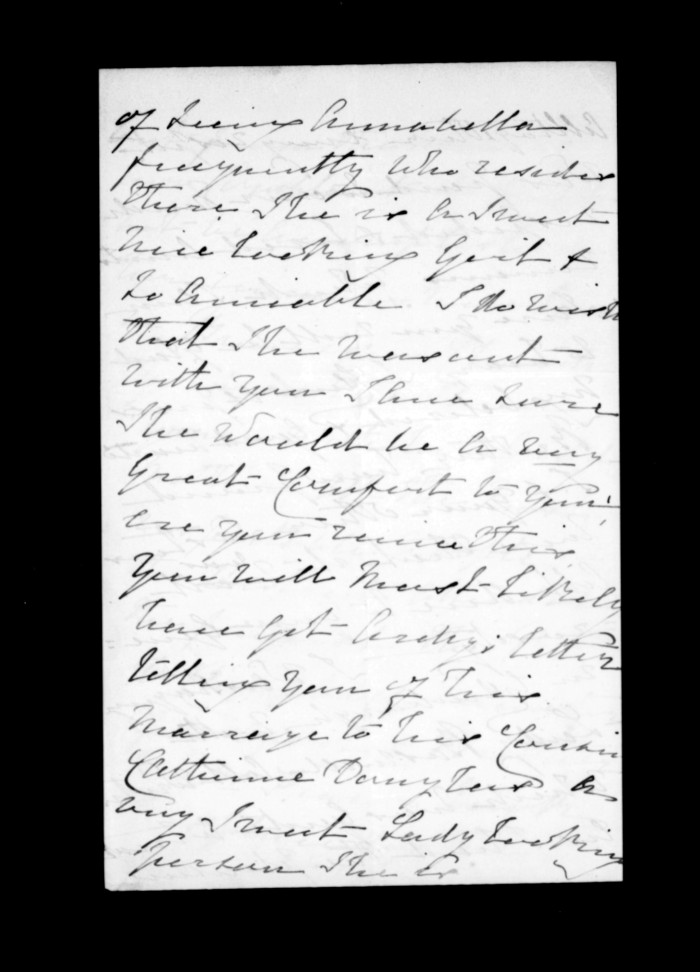 of Seeing Annabella
frequently who resides
there She is a Sweet
nice looking Girl &
so amiable I do wish
that She was out
with you I hue sure
She would be a very
Great Comfort to you;
ere you receive this
you will Most Likely
have got Archy's letter
telling you of his
marraige to his Cousin
Catherine Douglas a
very Sweet Lady looking
person She is